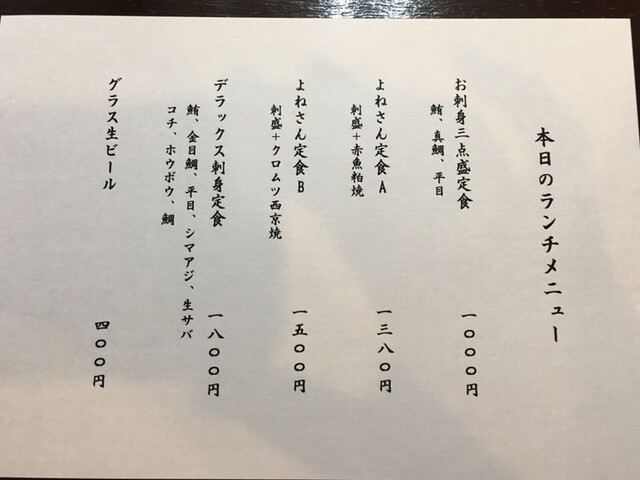 本日のランチメニュー
お刺身三点盛定食 一〇〇〇円
鮪、真鯛、平目
よねさん定食A 一三八〇円
刺盛+赤魚粕焼
よねさん定食B 一五〇〇円
刺盛+クロムツ西京焼
デラックス刺身定食 一八〇〇円
鮪、金目鯛、平目、シマアジ、生サバ
コチ、ホウボウ、鯛
グラス生ビール 四〇〇円